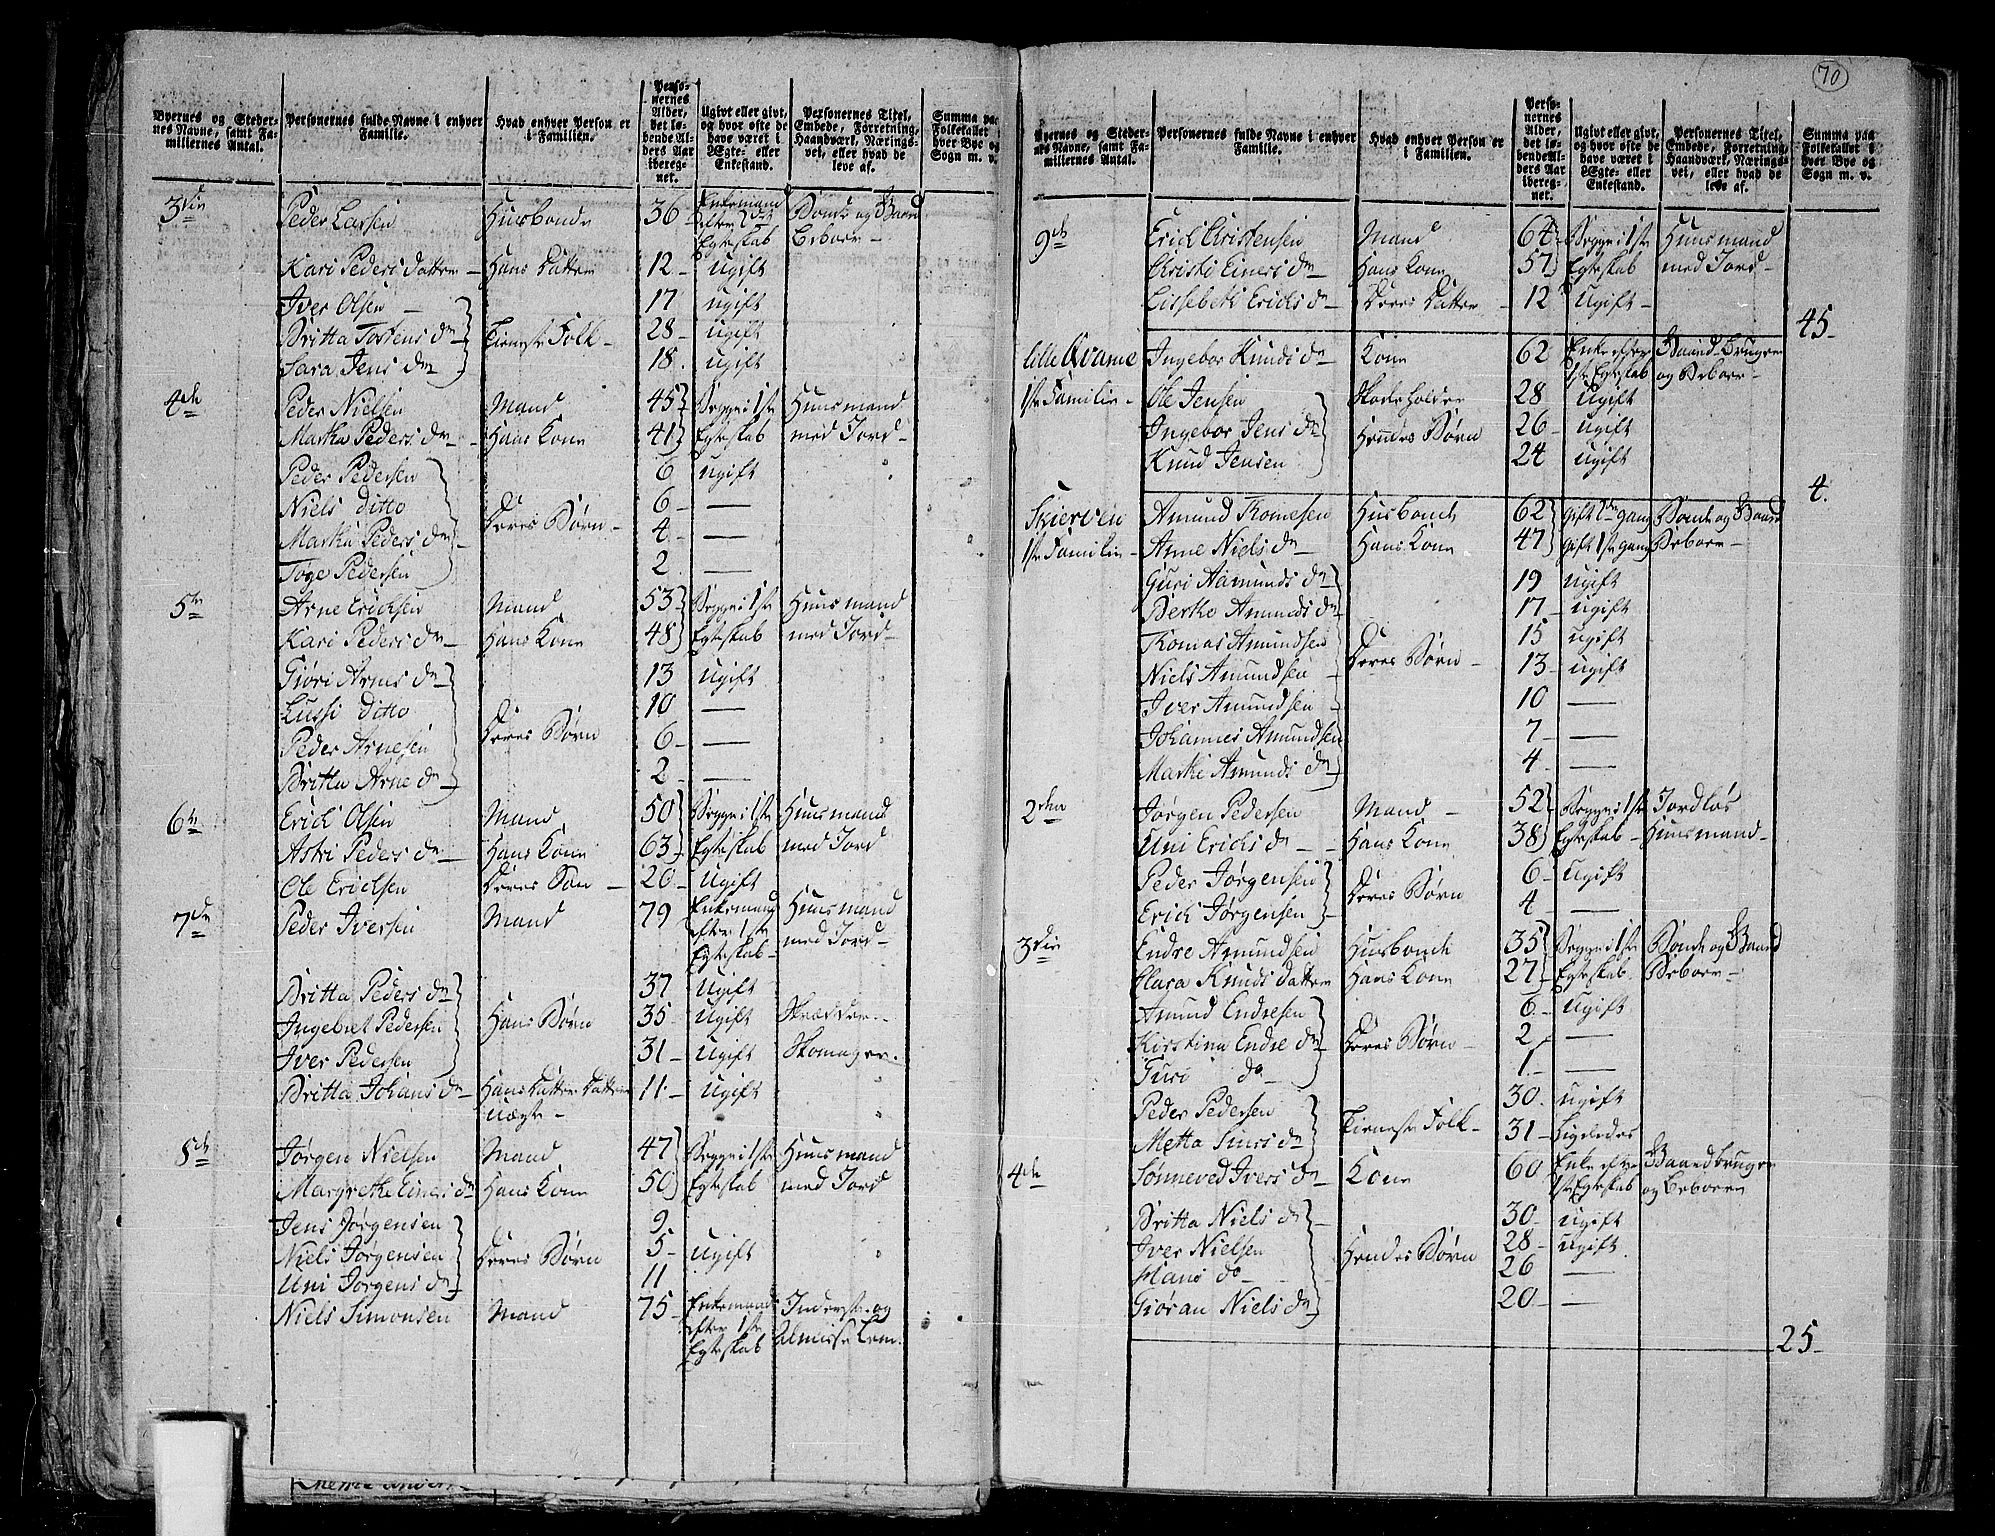 Byernes og Stedernes Navne, samt Familiernes Antal. | Personernes fulde Navne i enhver Familie. | Hvad enhver Person er i Familien. | Personernes Alder, det løbende Alders Aar iberegnet. | Ugivt eller givt, og hvor ofte de have været i Ægte- eller Enkestand. | Personernes Titel, Embede, Forretning, Haandværk, Næringsvei, eller hvad de leve af. | Summa paa Folketallet i hver Bye og Sogn m. v.
3die Peder Larsen Husbonde 36 Enkemand efter Egteskab Bonde og Gaard Beboer
Kari Peders datter Hans Datter 12 ugift
Iver Olsen 17 ugift
Britta Tostens dr Tieneste Folk 28 ugift
Sara Jens dr 18 ugift
4de Peder Nielsen Mand 45 Begge i 1ste Huusmand
Martha Peders dr Hans Kone 41 Egteskab med Jord
Peder Pedersen 6 ugift
Niels ditto 6 —
Martha Peders dr Deres Børn 4 —
Tøge Pedersen 2 —
5te Arne Ericksen Mand 53 Begge i 1ste Huusmand
Kari Peders dr Hans Kone 48 Egteskab med Jord
Giøri Arnes dr 13 ugift
Lussi ditto 10 —
Peder Arnesen Deres Børn 6 —
Britta Arne dr 2 —
6te Erich Olsen Mand 50 Begge i 1ste Huusmand
Astri Peders dr Hans Kone 63 Egteskab med Jord
Ole Ericksen Deres Søn 20 Ugift
7de Peder Iversen Mand 79 Enkemand efter 1ste Egteskab Huusmand med Jord
Britta Peders dr 37 Ugift
Ingebret Pedersen Hans Børn 35 Ugift Skrædder
Iver Pedersen 31 Ugift Skomager
Britta Johans dr Hans Datter Datter uægte 11 Ugift
8de Jørgen Nielsen Mand 47 Begge i 1ste Huusmand
Margrethe Einers dr Hans Kone 50 Egteskab med Jord
Jens Jørgensen 9
Niels Jørgensen Deres Børn 5 ugift
Uni Jørgens dr 11
Niels Simonsen Mand 75 Enkemand efter 1ste Egteskab Inderste og Almisse Lem
70
Byernes og Stedernes Navne, samt Familiernes Antal. | Personernes fulde Navne i enhver Familie. | Hvad enhver Person er i Familien. | Personernes Alder, det løbende Alders Aar iberegnet. | Ugivt eller givt, og hvor ofte de have været i Ægte- eller Enkestand. | Personernes Titel, Embede, Forretning, Haandværk, Næringsvei, eller hvad de leve af. | Summa paa Folketallet i hver Bye og Sogn m. v.
9de Erich Christensen Mand 64 Begge i 1ste Huusmand
Christi Einers dr Hans Kone 57 Egteskab med Jord
Lissebeth Erichs dr Deres Datter 12 Ugift
45
Lille Qvame Ingebor Knuds dr Kone 62 Enke efter 1ste Egteskab Gaard Bruger og Beboer
1ste Familie Ole Jensen 28 Ugift
Ingebor Jens dr Hendes Børn 26 ugift
Knud Jensen 24 ugift
4
Skierven Amund Tomesen Husbonde 62 gift 2den gang Bonde og Gaard
1ste Familie Anne Niels dr Hans Kone 47 gift 1ste gang Beboer
Guri Aamunds dr 19 ugift
Berthe Amunds dr 17 ugift
Tomas Amundsen 15 ugift
Niels Amundsen Deres Børn 13 ugift
Iver Amundsen 10 —
Johannes Amundsen 7 —
Marthe Amunds dr 4 —
2den Jørgen Pedersen Mand 52 Begge i 1ste Jordløs
Uni Erichs dr Hans Kone 38 Egteskab Huusmand
Peder Jørgensen 6 Ugift
Erich Jørgensen Deres Børn 4 —
3die Endre Amundsen Husbonde 35 Begge i 1ste Bonde og Gaard
Clara Knuds datter Hans Kone 27 Egteskab Beboer
Amund Endresen 6 Ugift
Kirstina Endre dr Deres Børn 2 —
Guri do 1 —
Peder Pedersen 30 ugift
Metta dr Tieneste Folk 31 Ligeledes
4de Sønneved Ivers dr Kone 60 Enke efter 1ste Egteskab Gaardbruger og Beboer
Britta Niels dr 30 ugift
Iver Nielsen Hendes Børn 28 ugift
Hans do 26 —
Giøran Niels dr 20 —
25